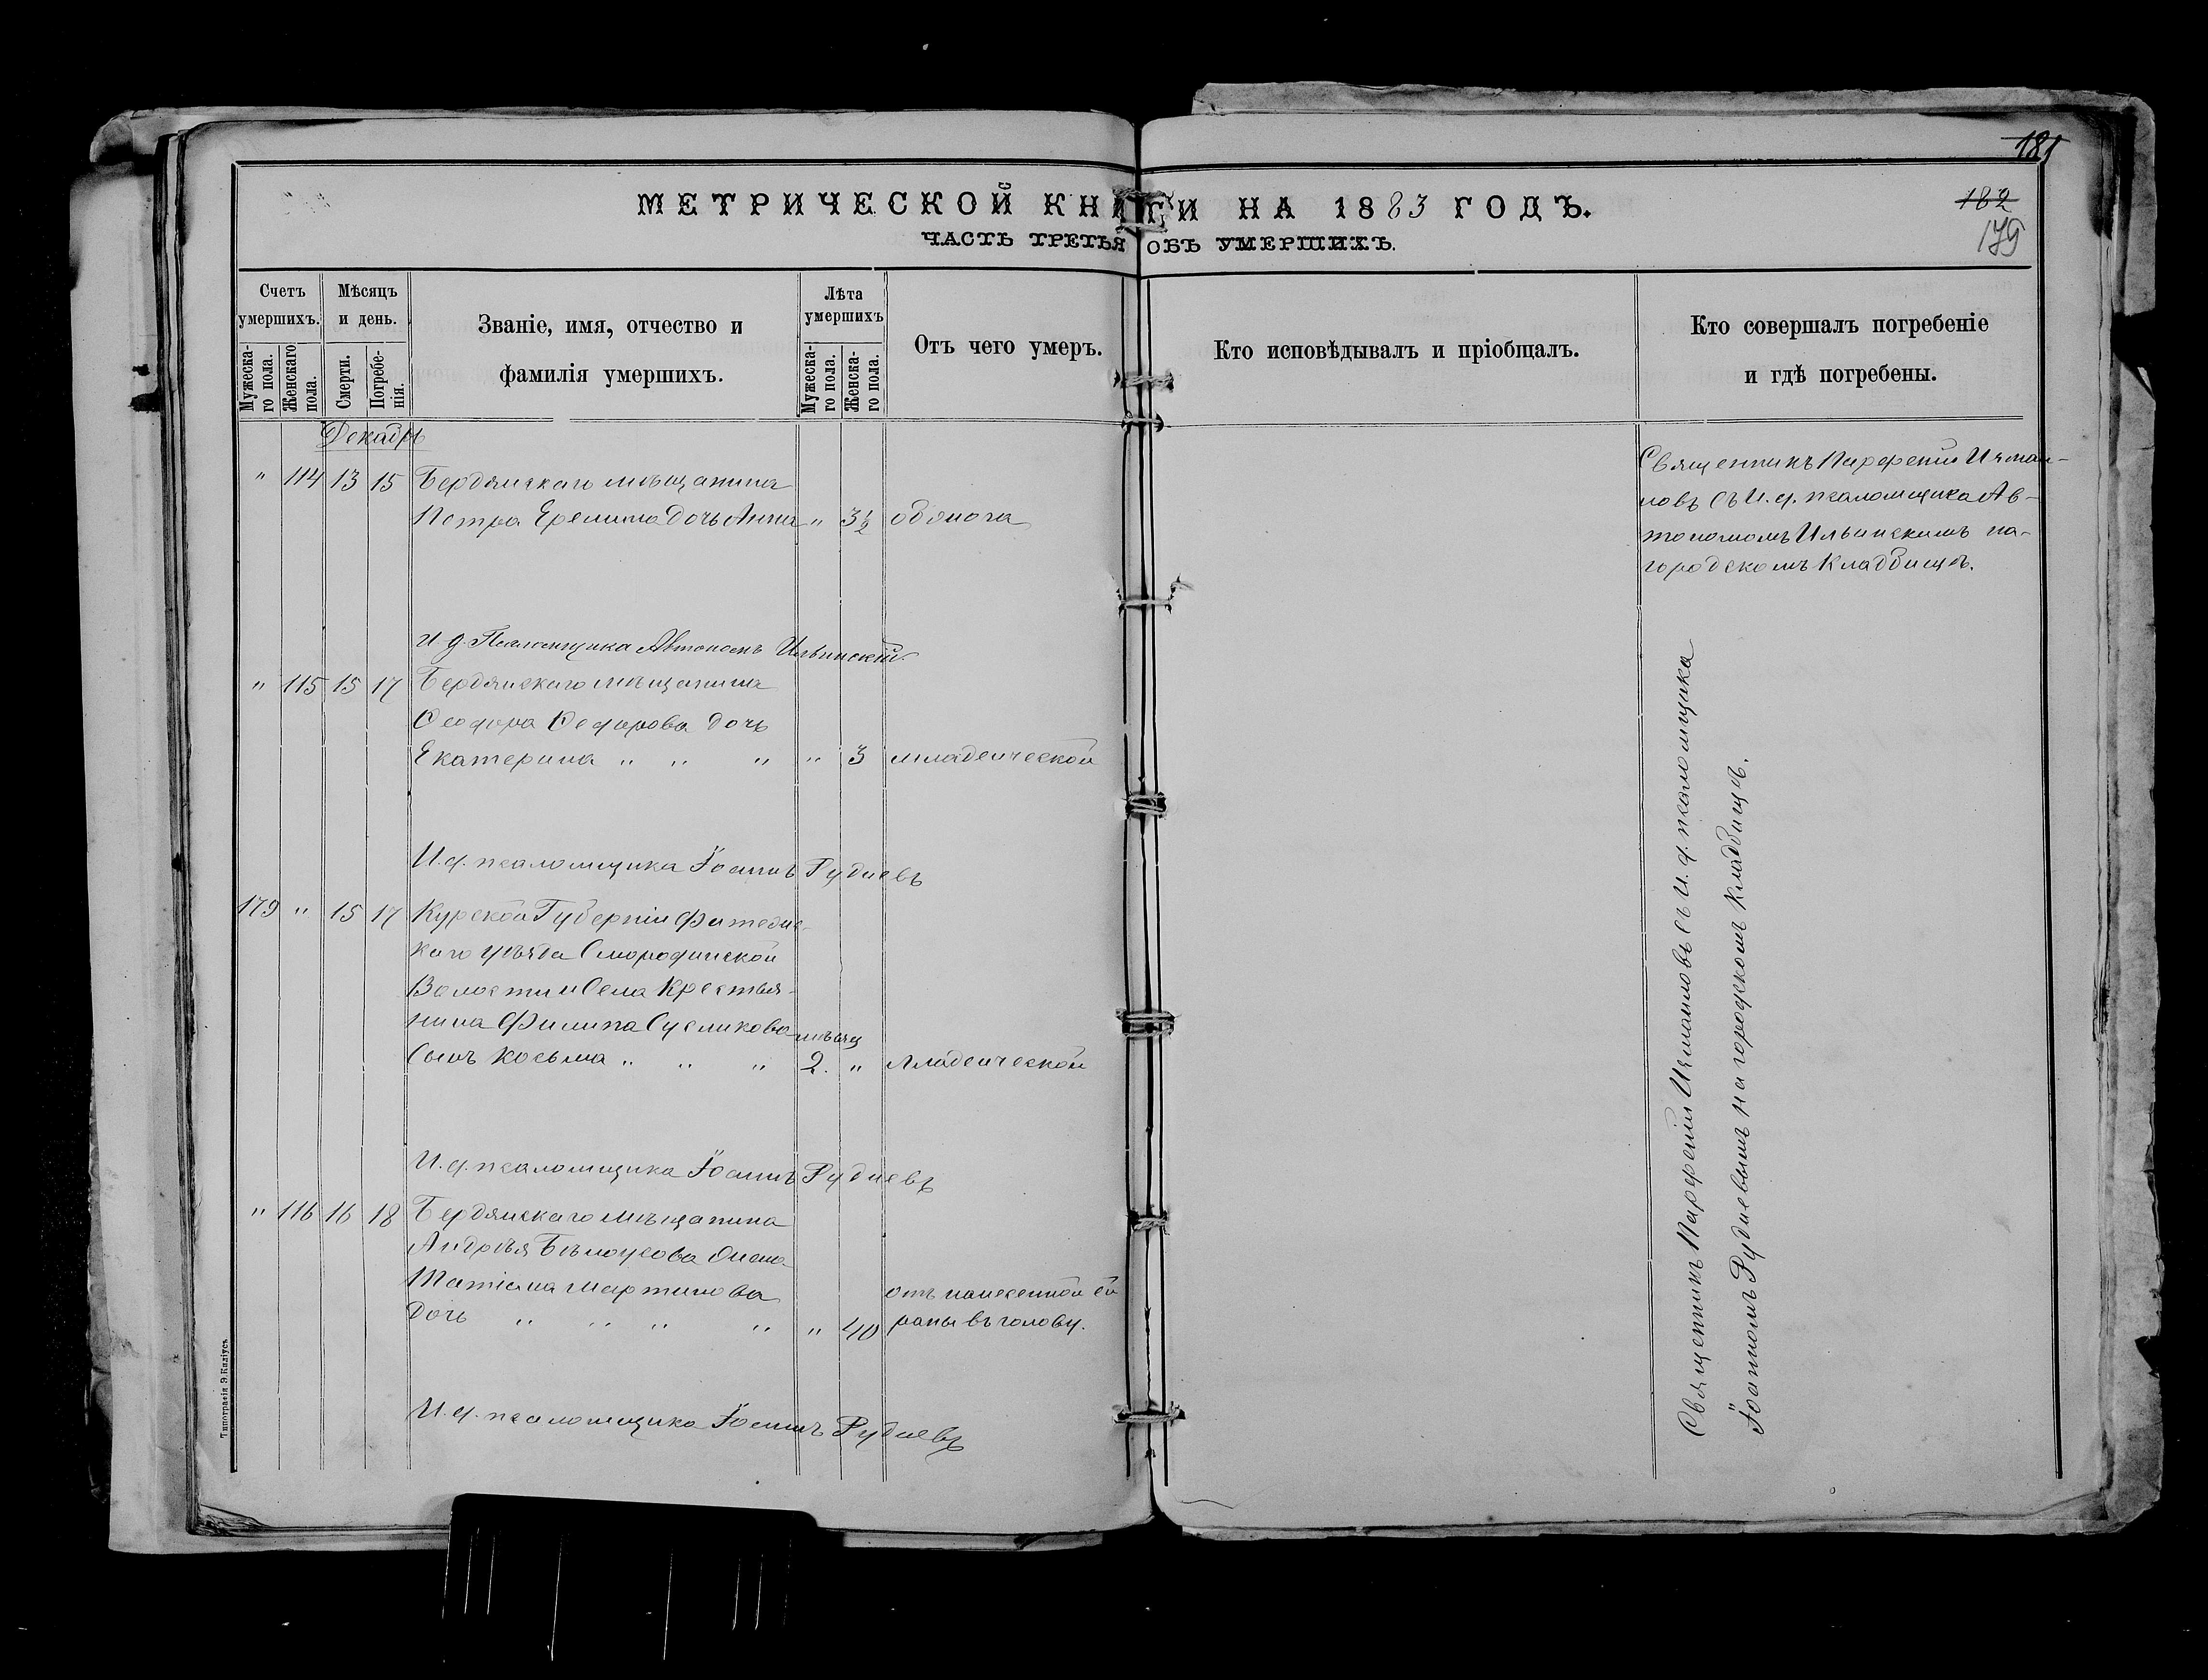 181
182
179
МЕТРИЧЕСКОЙ КНИГИ НА 1883 ГОДЪ.
ЧАСТЬ ТРЕТЬЯ ОБЪ УМЕРШИХЪ.
Счетъ умершихъ.
Мужеска-го пола.
Женскаго пола.
Мѣсяцъ и день.
Смерти.
Погребе-нія.
Званіе, имя, отчество и
фамилія умершихъ.
Лѣта умершихъ
Мужеска-го пола.
Женска-го пола.
Отъ чего умеръ.
Кто исповѣдывалъ и пріобщалъ.
Кто совершалъ погребеніе
и гдѣ погребены.
Декабрь
" 114 13 15 Бердянскаго мѣщанина
Петра Еремина дочь Анна " 3½
Священникъ Парфеній
съ И. д. псаломщика Ав-
тономомъ Ильинскимъ на-
городскомъ кладбищѣ.
И д. Псаломщика Автономъ Ильинскій
" 115 15 17 Бердянскаго мѣщанина
Ѳеодора Ѳедорова дочь
Екатерина " " " " 3 младенческой
И. д. псаломщика Іоаннъ Рудневъ
179 " 15 17 Курской Губерніи Фатежс-
каго уѣзда Смородинской
Волости и Села Крестья-
нина Филипа Сусликова мѣсяц
Сынъ Косьма " " " 2. " Младенческой
И. д. псаломщика Іоаннъ Рудневъ
" 116 16 18 Бердянскаго мѣщанина
Андрѣя Бѣлоусова жена
Татіана Мартинова
дочь " " " " " 40 отъ нанесенной ей
раны въ голову.
И. д. псаломщика Іоаннъ Рудневъ
Священникъ Парфеній съ И. д. псаломщика
Іоанномъ Рудневымъ на городскомъ кладбищѣ.
Типографія Э. Килiусъ